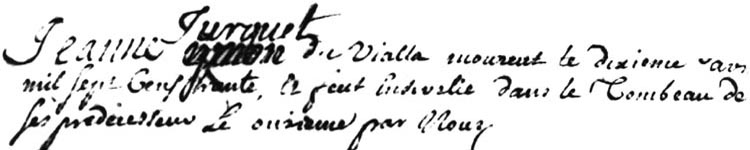 Turquet
Jeanne du Vialla mourut le dixieme
mil sept cens trante, et feut Ensevelie dans le Tombeau de
ses predecesseur Le onzieme par Nous